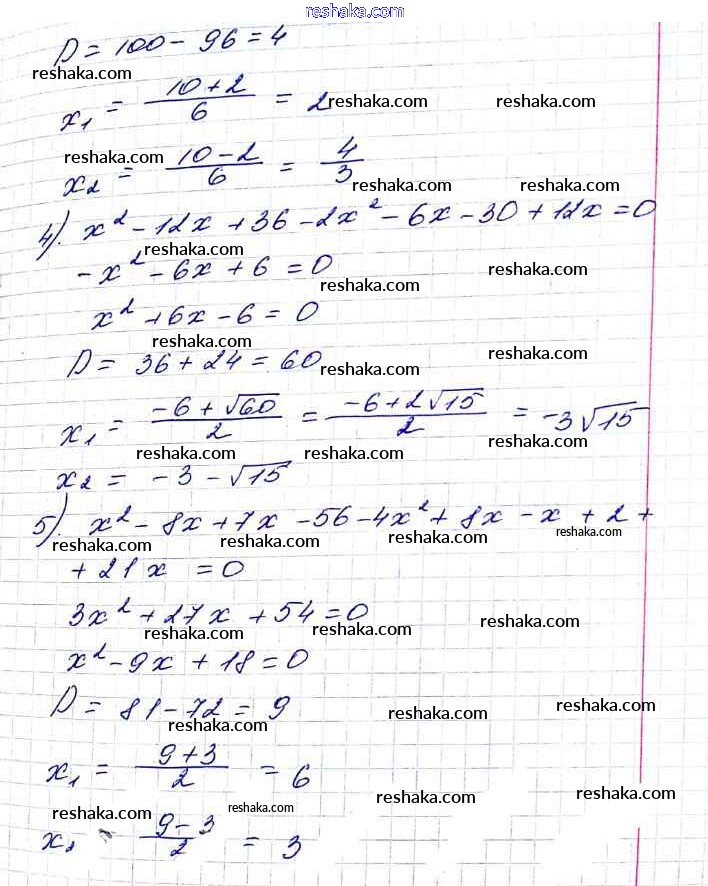 reshaka.com
D = 100 - 96 = 4
reshaka.com
x₁ = (10+2)/6 = 2 reshaka.com reshaka.com
reshaka.com
x₂ = (10-2)/6 = 4/3
reshaka.com reshaka.com
4). x² - 12x + 36 - 2x² - 6x - 30 + 12x = 0
reshaka.com
-x² - 6x + 6 = 0
reshaka.com
x² + 6x - 6 = 0
reshaka.com reshaka.com
D = 36 + 24 = 60
reshaka.com
x₁ = (-6+√60)/2 = (-6+2√15)/2 = -3√15
reshaka.com reshaka.com reshaka.com
x₂ = -3 - √15
reshaka.com
5). x² - 8x + 7x - 56 - 4x² + 8x - x + 2 +
reshaka.com reshaka.com reshaka.com
+ 21x = 0
3x² + 27x + 54 = 0
reshaka.com reshaka.com reshaka.com
x² - 9x + 18 = 0
D = 81 - 72 = 9
reshaka.com reshaka.com reshaka.com
x₁ = (9+3)/2 = 6
reshaka.com reshaka.com
reshaka.com reshaka.com
x₂ = (9-3)/2 = 3